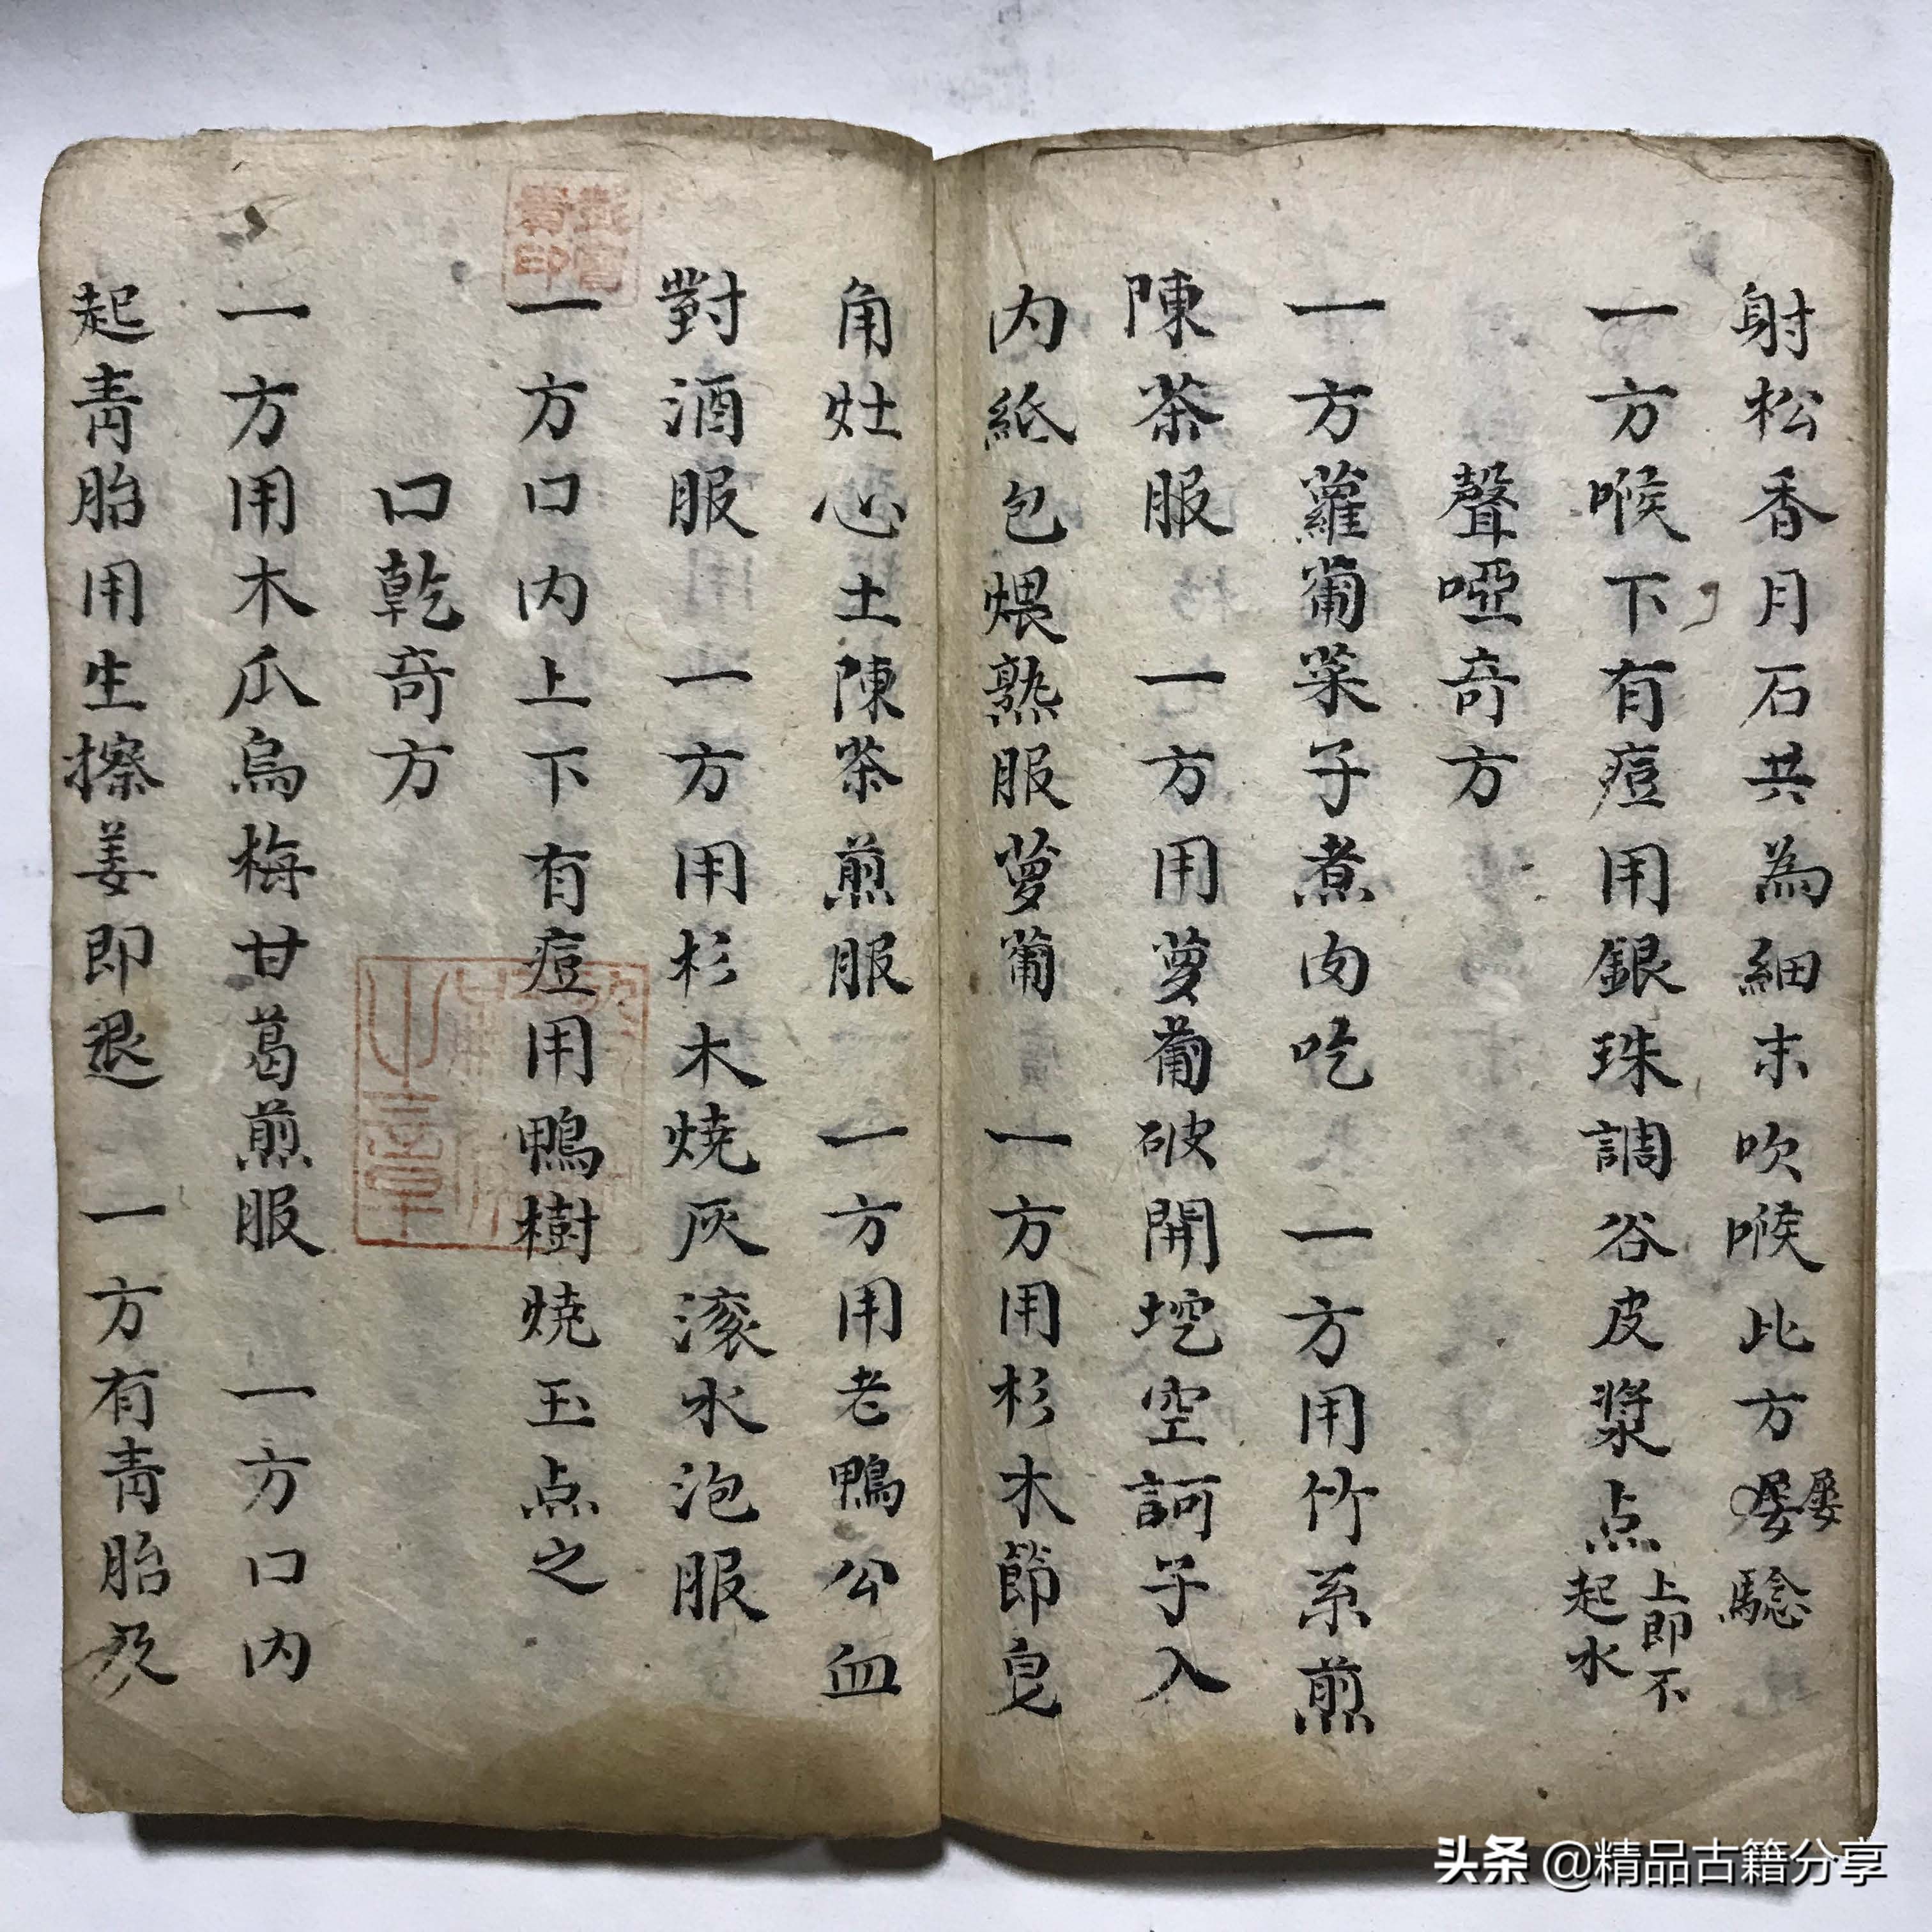 射松香月石共為細末吹喉比方屡屡驗
一方喉下有痘用銀珠調谷皮漿点上即不起水
聲啞奇方
一方蘿蔔菜子煮肉吃 一方用竹系煎
陳茶服 一方用萝蔔破開挖空訶子入
内紙包煨熟服萝蔔 一方用杉木節皂
角灶心土陳茶煎服 一方用老鴨公血
對酒服 一方用杉木燒灰滚水泡服
一方口内上下有痘用鴨樹燒玉点之
口乾奇方
一方用木瓜烏梅甘葛煎服 一方口内
起青胎用生擦姜即退 一方有青胎及
頭条 @精品古籍分享